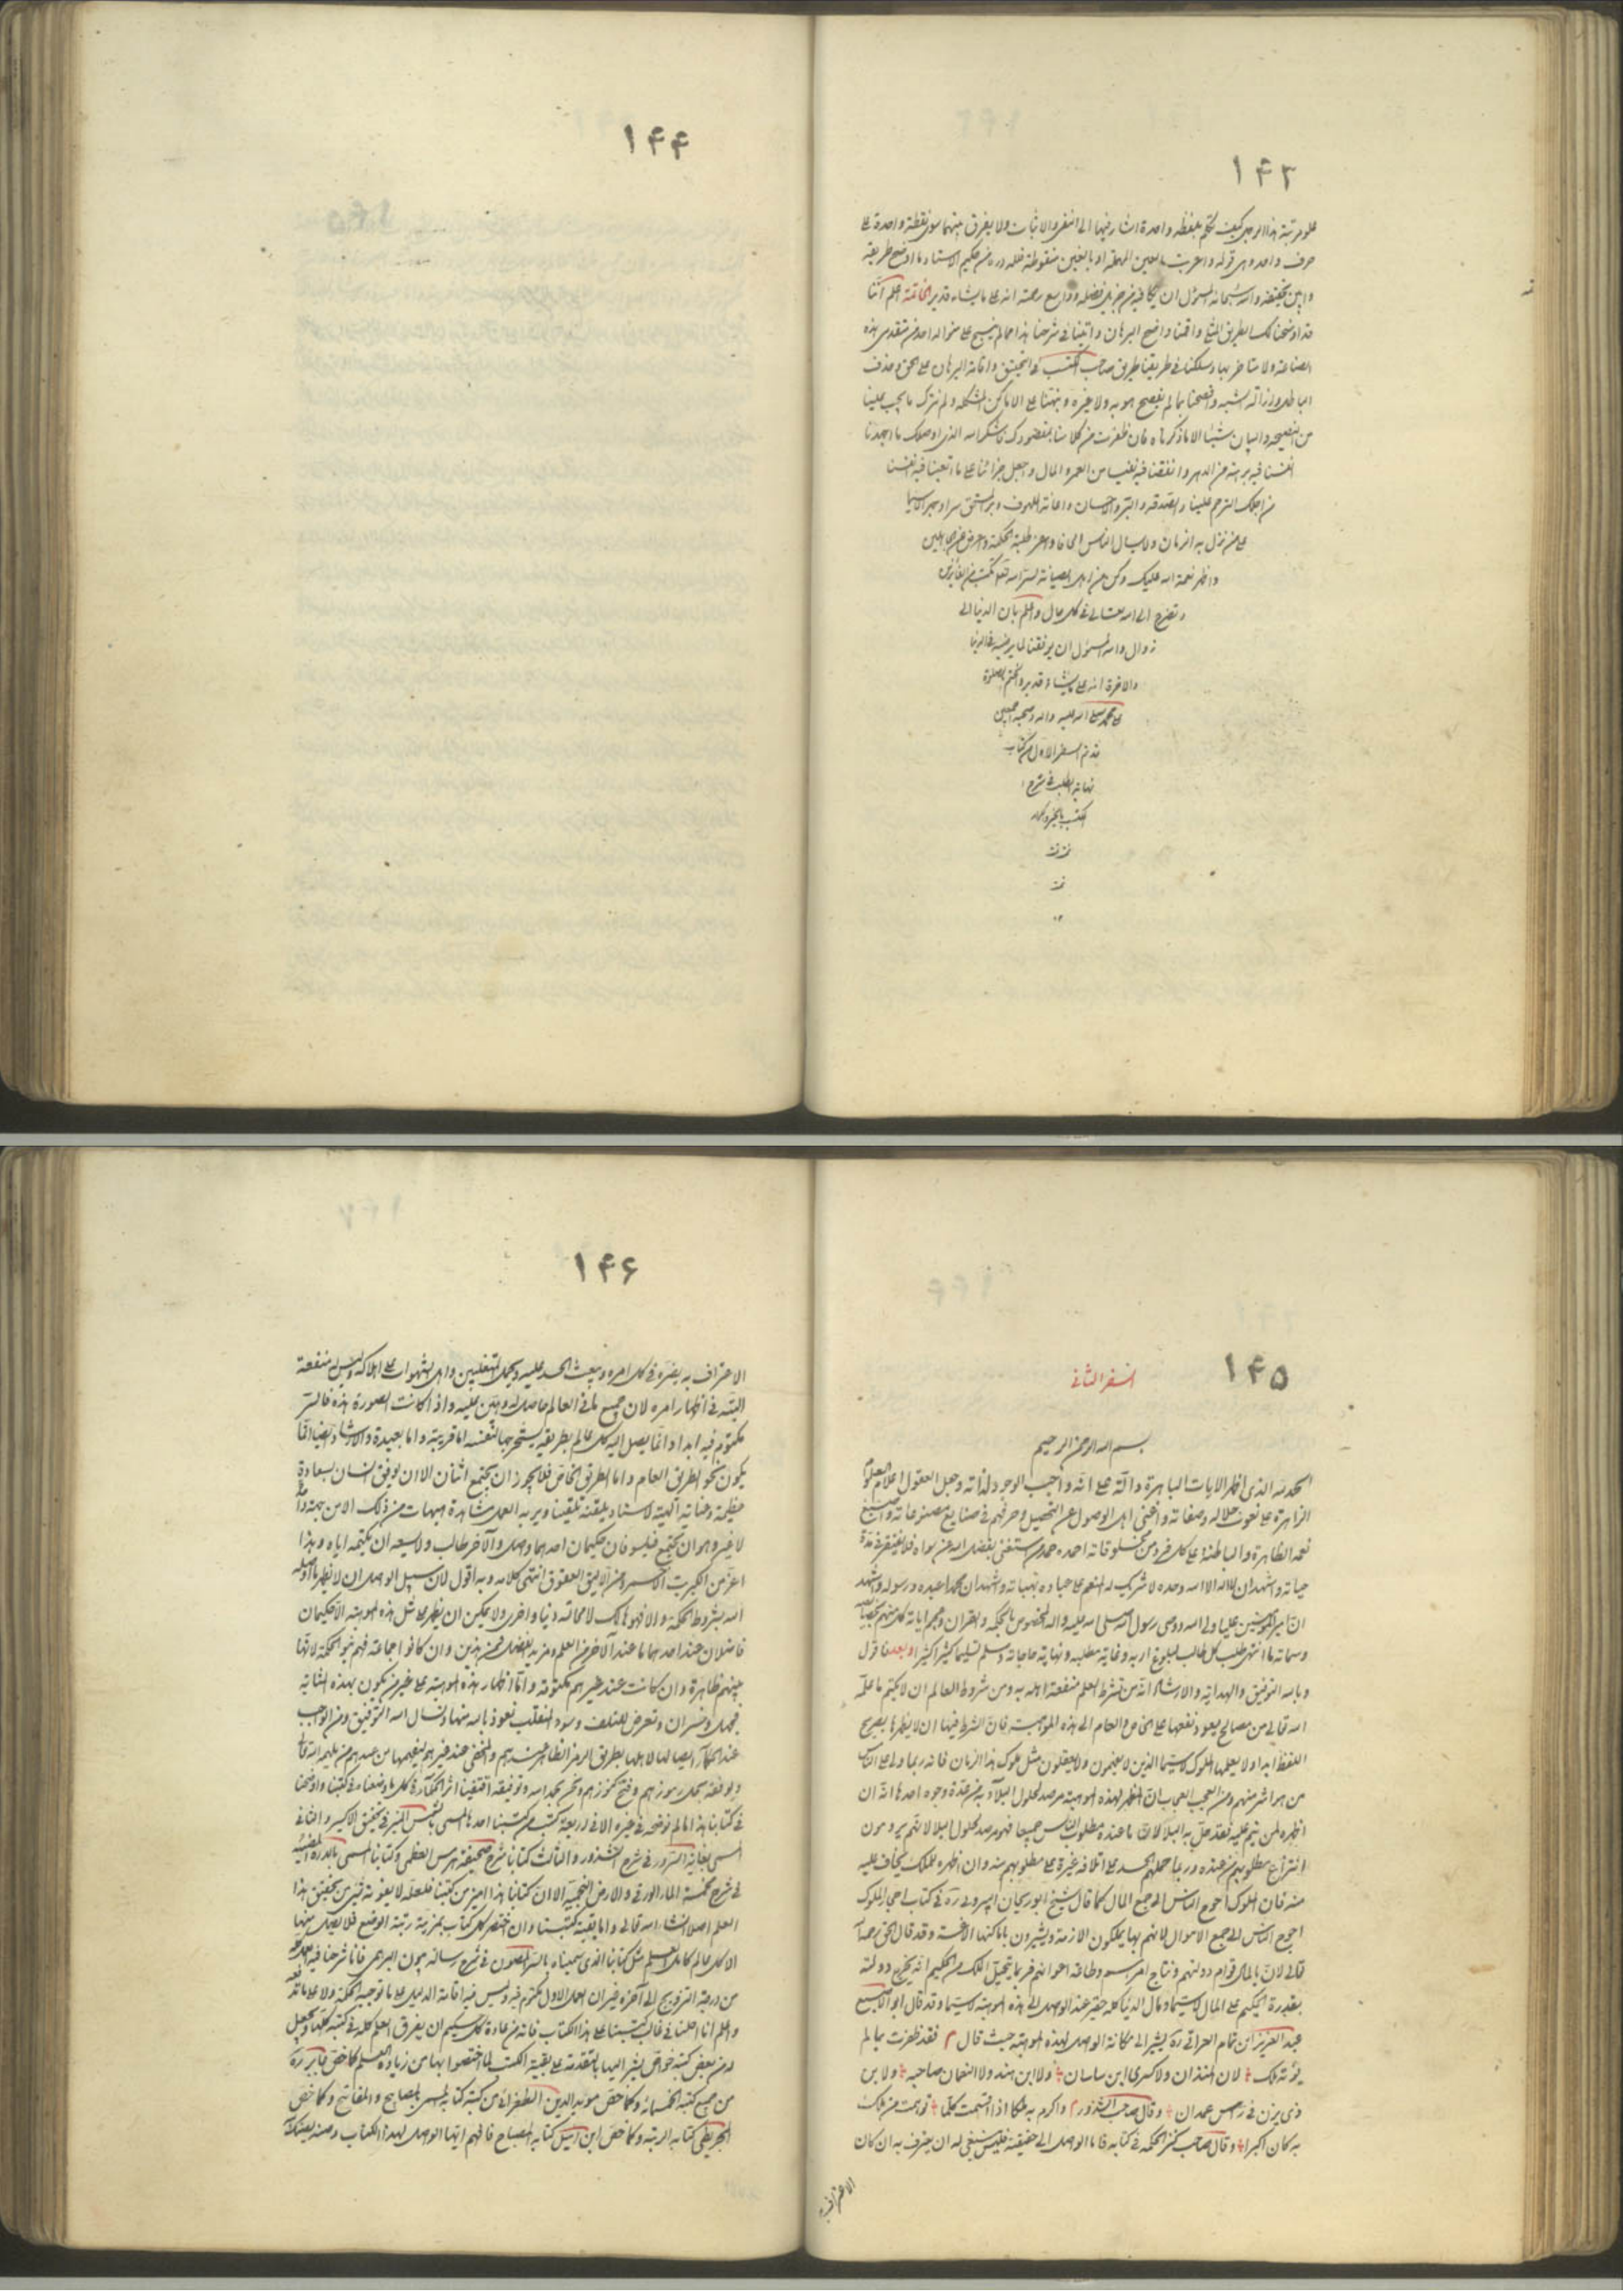 ۱۴۳
علو مرتبة هذا الرجل كيف تكلم بلفظة واحدة اشار فيها الى النفى والاثبات ولا يفرق بينهما سوى نقطة واحدة على
حرف واحد وهى قوله واعربت بالعين المهملة او بالغين منقوطة فلله دره من حكيم الاستاد ما اوضح طريقه
والله سبحانه المسؤل ان يكافيه من جزيل فضله وواسع رحمته انه على ما يشاء قدير الخاتمة اعلم اننا
قد اوضحنا لك الطريق المثلى واقمنا واضح البرهان واتينا فى شرحنا هذا مما لم ينسج على منواله احد من متقدمى هذه
الصناعة ولا متاخريها وسلكنا فى طريقنا طريق صاحب المكتسب فى التحقيق واقامة البرهان على الحق وحذف
الباطل وازالة الشبه وافصحنا بما لم يفصح هو به ولا غيره ونبهنا على الاماكن المشكلة ولم نترك ما يجب علينا
من النصيحة والبيان شيئا الا ما ذكرناه فان ظفرت من كلامنا بمقصودك فاشكر الله الذى اوصلك ما اجهدنا
انفسنا فيه برهة من الدهر وانفقنا فيه نفيسا من العمر والمال واجعل جزائنا على ما اتعبنا فيه انفسنا
من اجلك الترحم علينا والصدقة والبر والاحسان واغاثة الملهوف
على من نزل به الزمان ولا يسال الناس الحافا واعن طلبة الحكمة واعرض عن الجاهلين
واظهر نعمة الله عليك وكن من اهل الصيانة لسر الله تعالى تكتب من الفائزين
وتضرع الى الله تعالى فى كل حال واعلم بان الدنيا الى
زوال والله المسؤل ان يوفقنا لما يرضيه فى الدنيا
والاخرة انه على ما يشاء قدير واختم بالصلوة
على محمد صلى الله عليه واله وصحبه اجمعين
قد تم السفر الاول من كتاب
نهاية الطلب فى شرح
المكتسب بالخير
تمت تمت
تمت
۱۴۴
۱۴۵
السفر الثانى
بسم الله الرحمن الرحيم
الحمد لله الذى اظهر الايات الباهرة دالة على انه واجب الوجود لذاته وجعل العقول اعلام العلوم
الزاهرة على نعوت جلاله وصفاته واغنى اهل الوصول عن التحصيل وحرفهم فى صنايع مصنوعاته واسبغ
نعمه الظاهرة والباطنة على كل فرد من مخلوقاته احمده حمد من استغنى بفضل الله عن سواه فلا يفتقر فى مدة
حياته واشهد ان لا اله الا الله وحده لا شريك له المنعم على عباده بهباته واشهد ان محمدا عبده ورسوله واشهد
ان امير المؤمنين عليا ولى الله ووصى رسول الله صلى الله عليه واله المخصوص بالحكمة والقران ومعجز اياته
وسماته ما انتهى طلب كل طالب لبلوغ اربه وغاية مطلبه ونهاية حاجاته وسلم تسليما كثيرا كثيرا وبعد فاقول
وبالله التوفيق والهداية والارشاد انه من شرط العلم منفعة اهله به ومن شروط العالم ان لا يكتم ما علمه
الله تعالى من مصالح يعود نفعها على الخاص والعام الا هذه الموهبة فان الشرط فيها ان لا يظهرها بصريح
اللفظ ابدا ولا يعلمها الملوك لا سيما الذين لا يفهمون ولا يعقلون مثل ملوك هذا الزمان فانه ربما
من هو اشر منهم ومن العجب العجاب ان المظهر لهذه الموهبة مرصد لحلول البلاء به من عدة وجوه احدها انه ان
اظهره لمن ينم عليه فقد حل به البلا لان ما عنده مطلوب الناس جميعا فهو مرصد لحلول البلا لانهم يرومون
انتزاع مطلوبهم من عنده وربما حملهم الحسد على اتلافه غيرة على مطلوبهم منه وان اظهره للملك يخاف عليه
منه فان الملوك احوج الناس الى جمع المال كما قال الشيخ ابو ريحان البيرونى ره فى كتاب له الملوك
احوج الناس الى جمع الاموال لانهم بها يملكون الازمة ويشيرون بامكنها الاعنة وقد قال الحق
قالى لان بالمال قوام دولتهم ونتاج امرهم وطاقة اعوانهم فربما يتخيل الملك من الحكيم انه يخرج دولته
بقدرة الحكيم على المال لا سيما ومال الدنيا كله حقير عند الواصل الى هذه الموهبة لا سيما وقد قال ابو الاصبع
عبد العزيز ابن تمام العراقى ره يشير الى مكانة الواصل لهذه الموهبة حيث قال فقد ظفرت بما لم
يؤته ملك لا المنذران ولا كسرى ابن ساسان ولا ابن هند ولا النعمان صاحبه ولا ابن
ذى يزن فى راس غمدان وقال صاحب الشذور واكرم به ملكا اذا انقسمت كلها توهمت من ملك
به كان اكبرا وقال صاحب كنز الحكمة فى كتابه فاما الواصل الى حقيقته فليس ينبغى له ان يعرف به ان كان
الاعتراف به
۱۴۶
الاعتراف به يضره فى كل امره ويبعث الحسد عليه ويحمل المتغلبين واهل الشهوات على اهلاكه وليس له منفعة
البتة فى اظهار امره لان جميع ما فى العالم حاصل له وهين عليه واذا كانت الصورة هذه فالستر
مكتوم فيه ابدا وانما يصل اليه كل عالم بطريقة يستخرجها لنفسه اما قريبة واما بعيدة والارشاد ايضا انما
يكون نحو الطريق العام واما الطريق الخاص فلا يجوز ان يجتمع اثنان الا ان يوفق انسان بسعادة
عظيمة وعناية الهية لاستاد يلقنه تلقينا ويريه العمل مشاهدة هيهات من ذلك الا من جهة واحدة
لا غير وهو ان يجتمع فيلسوفان حكيمان احدهما واصل والآخر طالب ولا يسعه ان يكتمه اياه وهذا
اعز من الكبريت الاحمر ومن الابلق العقوق انتهى كلامه وبه اقول لان سبيل الواصل ان لا يظهر ما اوصله
الله بشروط الحكمة والا فهو هالك لا محالة دنيا واخرى ولا يمكن ان يظهر على مثل هذه الموهبة الا حكيمان
فاضلان عند احدهما ما عند الآخر من العلم ومزيد الفضل فمن هذين وان كانوا جماعة فهم بنو الحكمة لانها
بينهم ظاهرة وان كانت عند غيرهم مكتومة واما اظهار هذه الموهبة على غير من يكون بهذه المثابة
فجهل وخسران وتعرض للتلف وسوء المنقلب نعوذ بالله منها ونسال الله التوفيق ومن الواجب
عند الحكماء ايصالها لاهلها بطريق الرمز الظاهر عندهم والمخفى عند غيرهم ليفهمها من عندهم من يلهمه الله تعالى
ويوفقه لحل رموزهم وفتح كنوزهم ونحن بحمد الله وتوفيقه اقتفينا اثر الحكماء فى كل ما وضعناه فى كتبنا واوضحنا
فى كتابنا هذا ما لم نوضحه فى غيره الا فى اربعة كتب من كتبنا احدها المسمى بالشمس المنير فى تحقيق الاكسير والثانى
المسمى بغاية السرور فى شرح الشذور والثالث كتابنا شرح صحيفة هرمس العظمى وكتابنا المسمى بالدرة المضيئة
فى شرح مخمسة الماء الورقى والارض النجمية الا ان كتابنا هذا اميز من كتبنا فلعله لا يفوته شئ من تحقيق هذا
العلم اصلا انشاء الله تعالى واما بقية كتبنا وان اختص كل كتاب بمزية رتبة الوضع فلا يصل منها
الا كل عالم كامل العلم مثل كتابنا الذى سميناه بالسر المصون فى شرح رسالة بيون البرهمى فاننا شرحنا فيه العمل كله
من درجة التزويج الى آخره غير ان العمل الاول مكتوم فيه وليس فيه اقامة الدليل على ما توجبه الحكمة ولا على ما تدفعه
واعلم اننا اعلنا فى غالب كتبنا على هذا الكتاب فانه من عادة كل حكيم ان يفرق العلم كله فى كتبه كلها ويجعل
له من بعض كتبه خواص يشير اليها بالتقدمة على بقية الكتب لما اختصوا بها من زيادة العلم كما خص جابر ره
من جميع كتبه الخمسمائة وكما خص مؤيد الدين الطغرائى من كتبه كتابه المسمى بالمصابيح والمفاتيح وكما خص
المجريطى كتابه الرتبة وكما خص ابن اميل كتابه المصباح فافهم ايها الواصل لهذا الكتاب وصنه بصيانتك